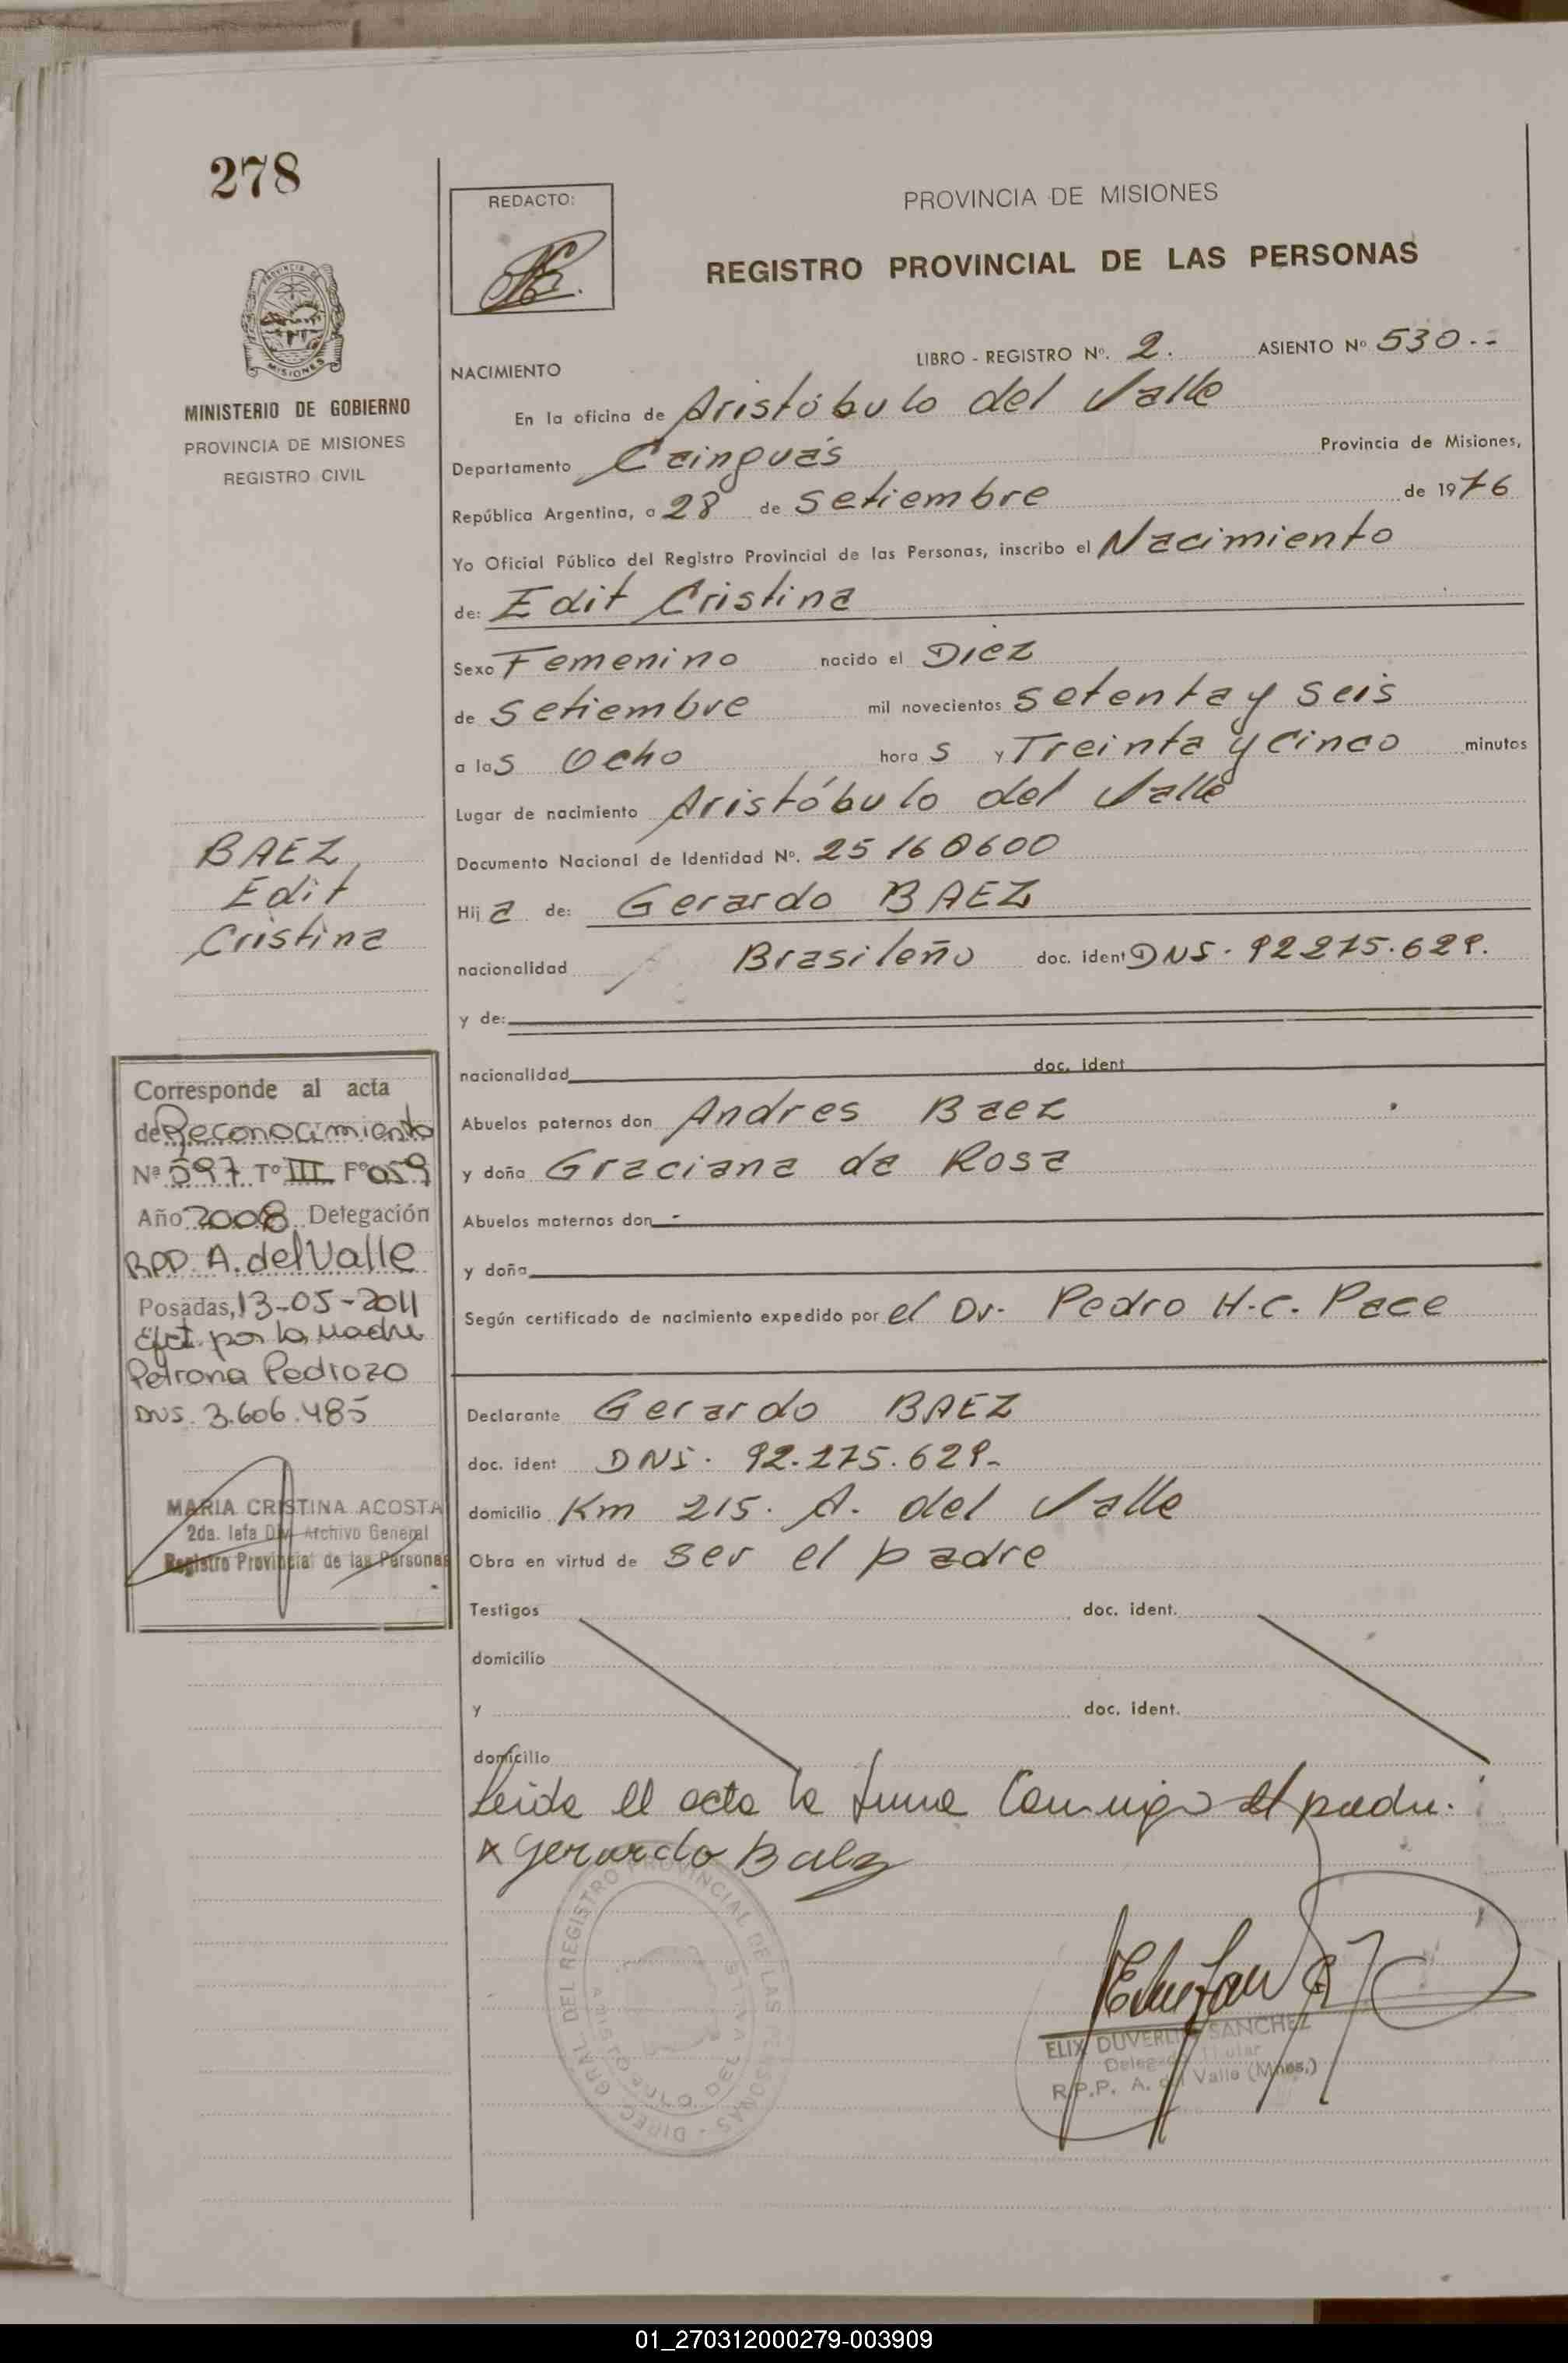 278
MINISTERIO DE GOBIERNO
PROVINCIA DE MISIONES
REGISTRO CIVIL
REDACTO:
PROVINCIA DE MISIONES
REGISTRO PROVINCIAL DE LAS PERSONAS
LIBRO - REGISTRO Nº. 2. ASIENTO Nº 530.--
NACIMIENTO
En la oficina de Aristóbulo del Valle
Departamento Cainguás Provincia de Misiones,
República Argentina, a 28 de Setiembre de 1976
Yo Oficial Público del Registro Provincial de las Personas, inscribo el Nacimiento
de: Edit Cristina
Sexo Femenino nacido el Diez
de Setiembre mil novecientos setenta y seis
a las Ocho horas y Treinta y cinco minutos
Lugar de nacimiento Aristóbulo del Valle
Documento Nacional de Identidad Nº. 25160600
Hija de: Gerardo BAEZ
nacionalidad Brasileño doc. ident DNI. 92275.629.
y de:
nacionalidad doc. ident
Abuelos paternos don Andres Baez
y doña Graciana da Rosa
Abuelos maternos don -
y doña
Según certificado de nacimiento expedido por el Dr. Pedro H.C. Pace
Declarante Gerardo BAEZ
doc. ident DNI. 92.275.629.-
domicilio Km 215. A. del Valle
Obra en virtud de ser el padre
Testigos doc. ident.
domicilio
y doc. ident.
domicilio
Leida el acta la firma conmigo el padre.
x Gerardo Baez
BAEZ,
Edit
Cristina
Corresponde al acta
de Reconocimiento
Nª 597 Tº III Fº 059
Año 2008 Delegación
RPP. A. del Valle
Posadas, 13-05-2011
Efct. por la madre
Petrona Pedrozo
DNI. 3.606.485
MARIA CRISTINA ACOSTA
2da. Jefa Div. Archivo General
Registro Provincial de las Personas
DIREC. GRAL. DEL REGISTRO PROVINCIAL DE LAS PERSONAS
ARISTOBULO DEL VALLE
SANCHEZ
Delegado Titular
R.P.P. A. del Valle (Mnes.)
01_270312000279-003909